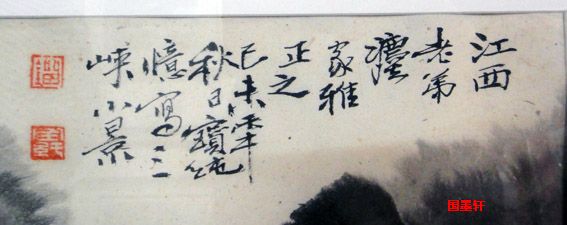 江西
老弟
家雅
正之
己未
秋日寶純
憶寫三
峽小景
国墨轩